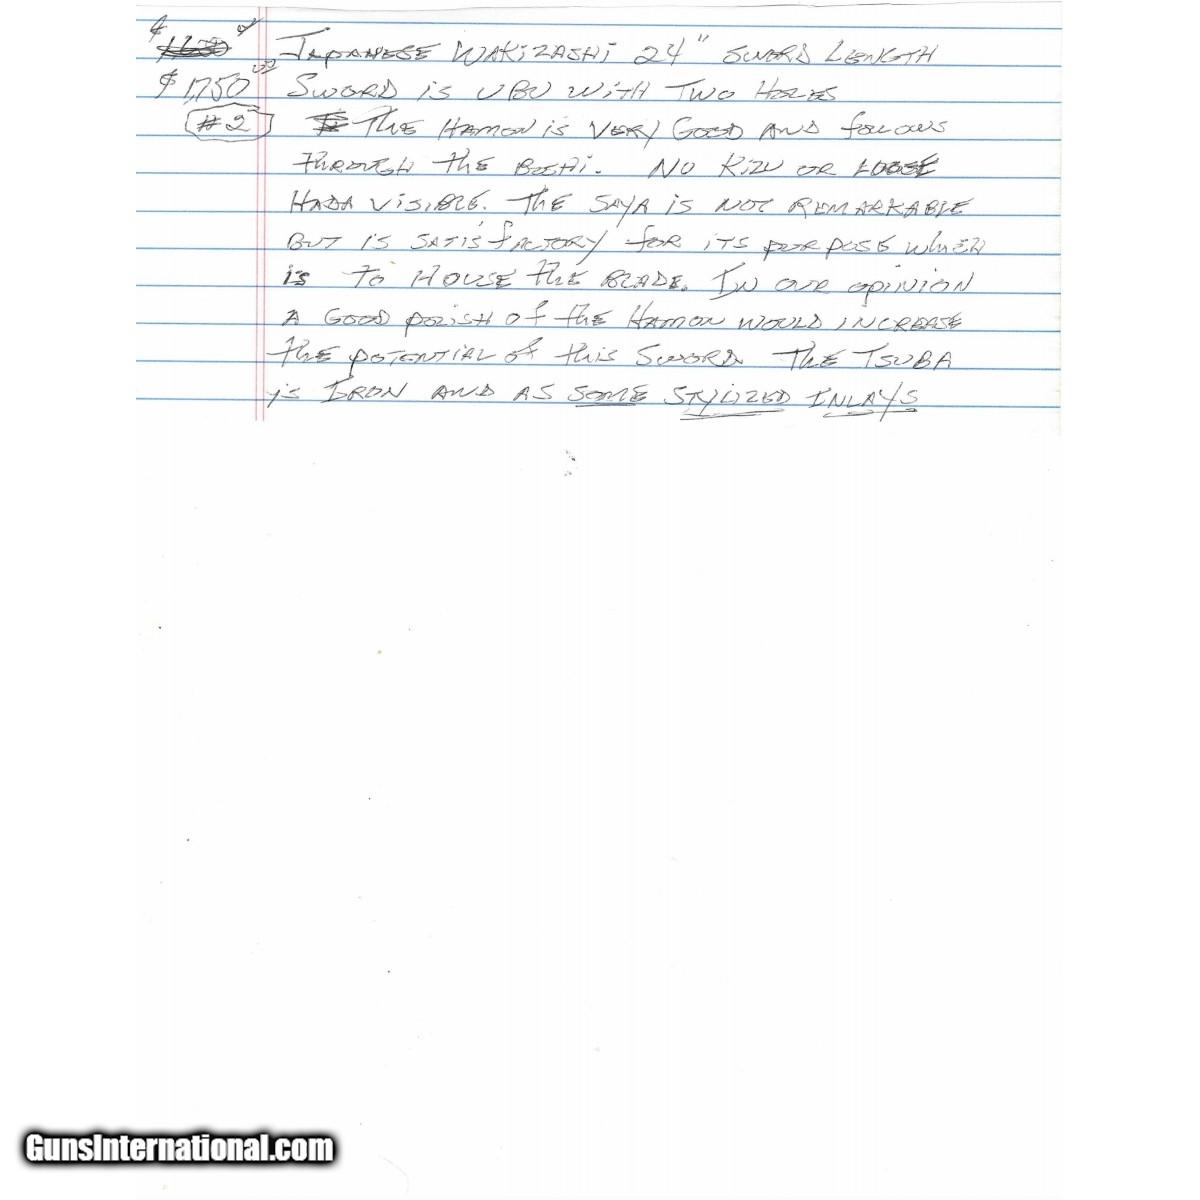 Japanese Wakizashi 24" Sword Length
$1,750 Sword is UBU with Two Holes
#2 The Hamon is very Good and follows
through the Boshi. No Kizu or Loose
Hada visible. The Saya is not remarkable
But is satisfactory for its purpose which
is to House the Blade. In our opinion
A Good polish of the Hamon would increase
the potential of this Sword. The Tsuba
is Iron and as some stylized Inlays
GunsInternational.com